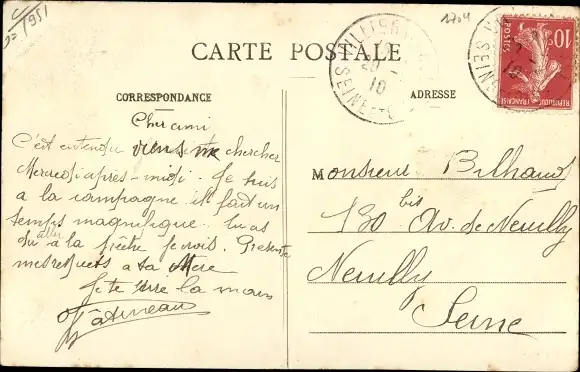 1904
CARTE POSTALE
CORRESPONDANCE
ADRESSE
10
POSTES
REPUBLIQUE FRANÇAISE
SEINE
10
Cher ami
C'est entendu viens me chercher
Mercredi après-midi. Je suis
a la campagne il fait un
temps magnifique. tu as
dû aller à la fête je crois. Présente
mes respects a ta Mère
Je te serre la main
Gâtineau
Monsieur Bilhaud
130 bis Av. de Neuilly
Neuilly
Seine